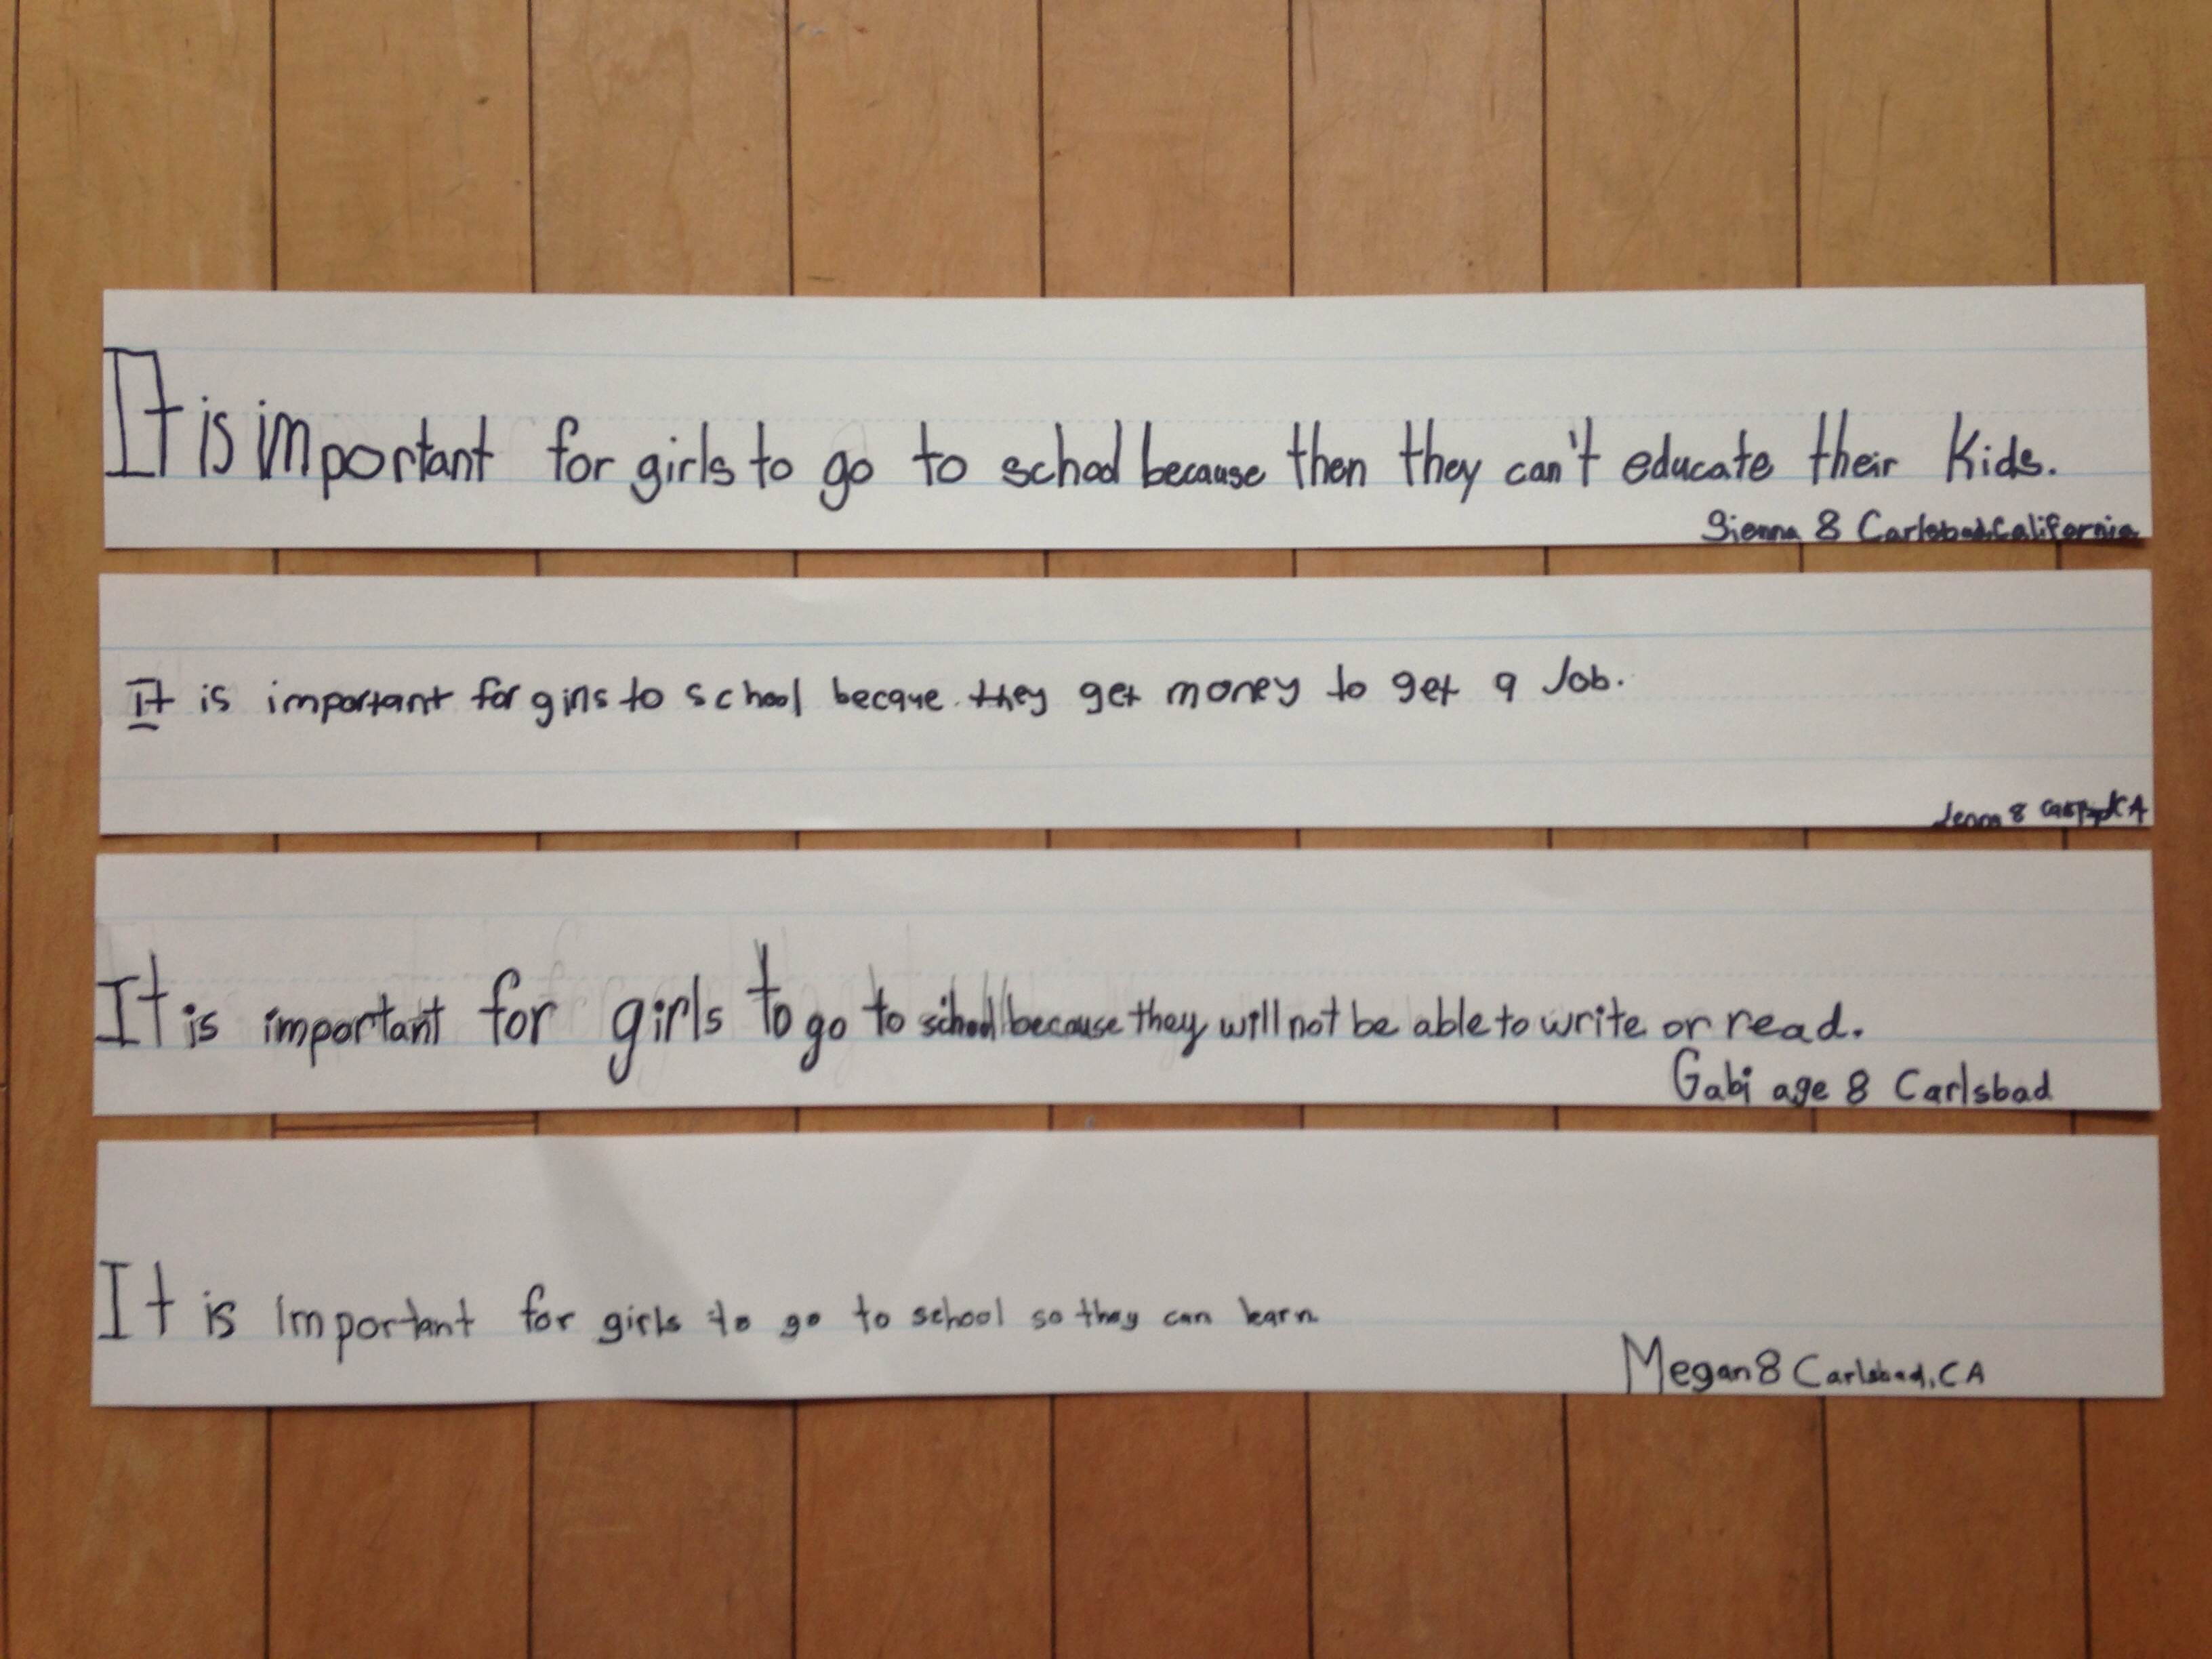 It is important for girls to go to school because then they can't educate their kids.
Sienna 8 Carlsbad, California
It is important for girls to school becaue they get money to get a Job.
Jenna 8 CA
It is important for girls to go to school because they will not be able to write or read.
Gabi age 8 Carlsbad
It is important for girls to go to school so they can learn
Megan 8 Carlsbad, CA